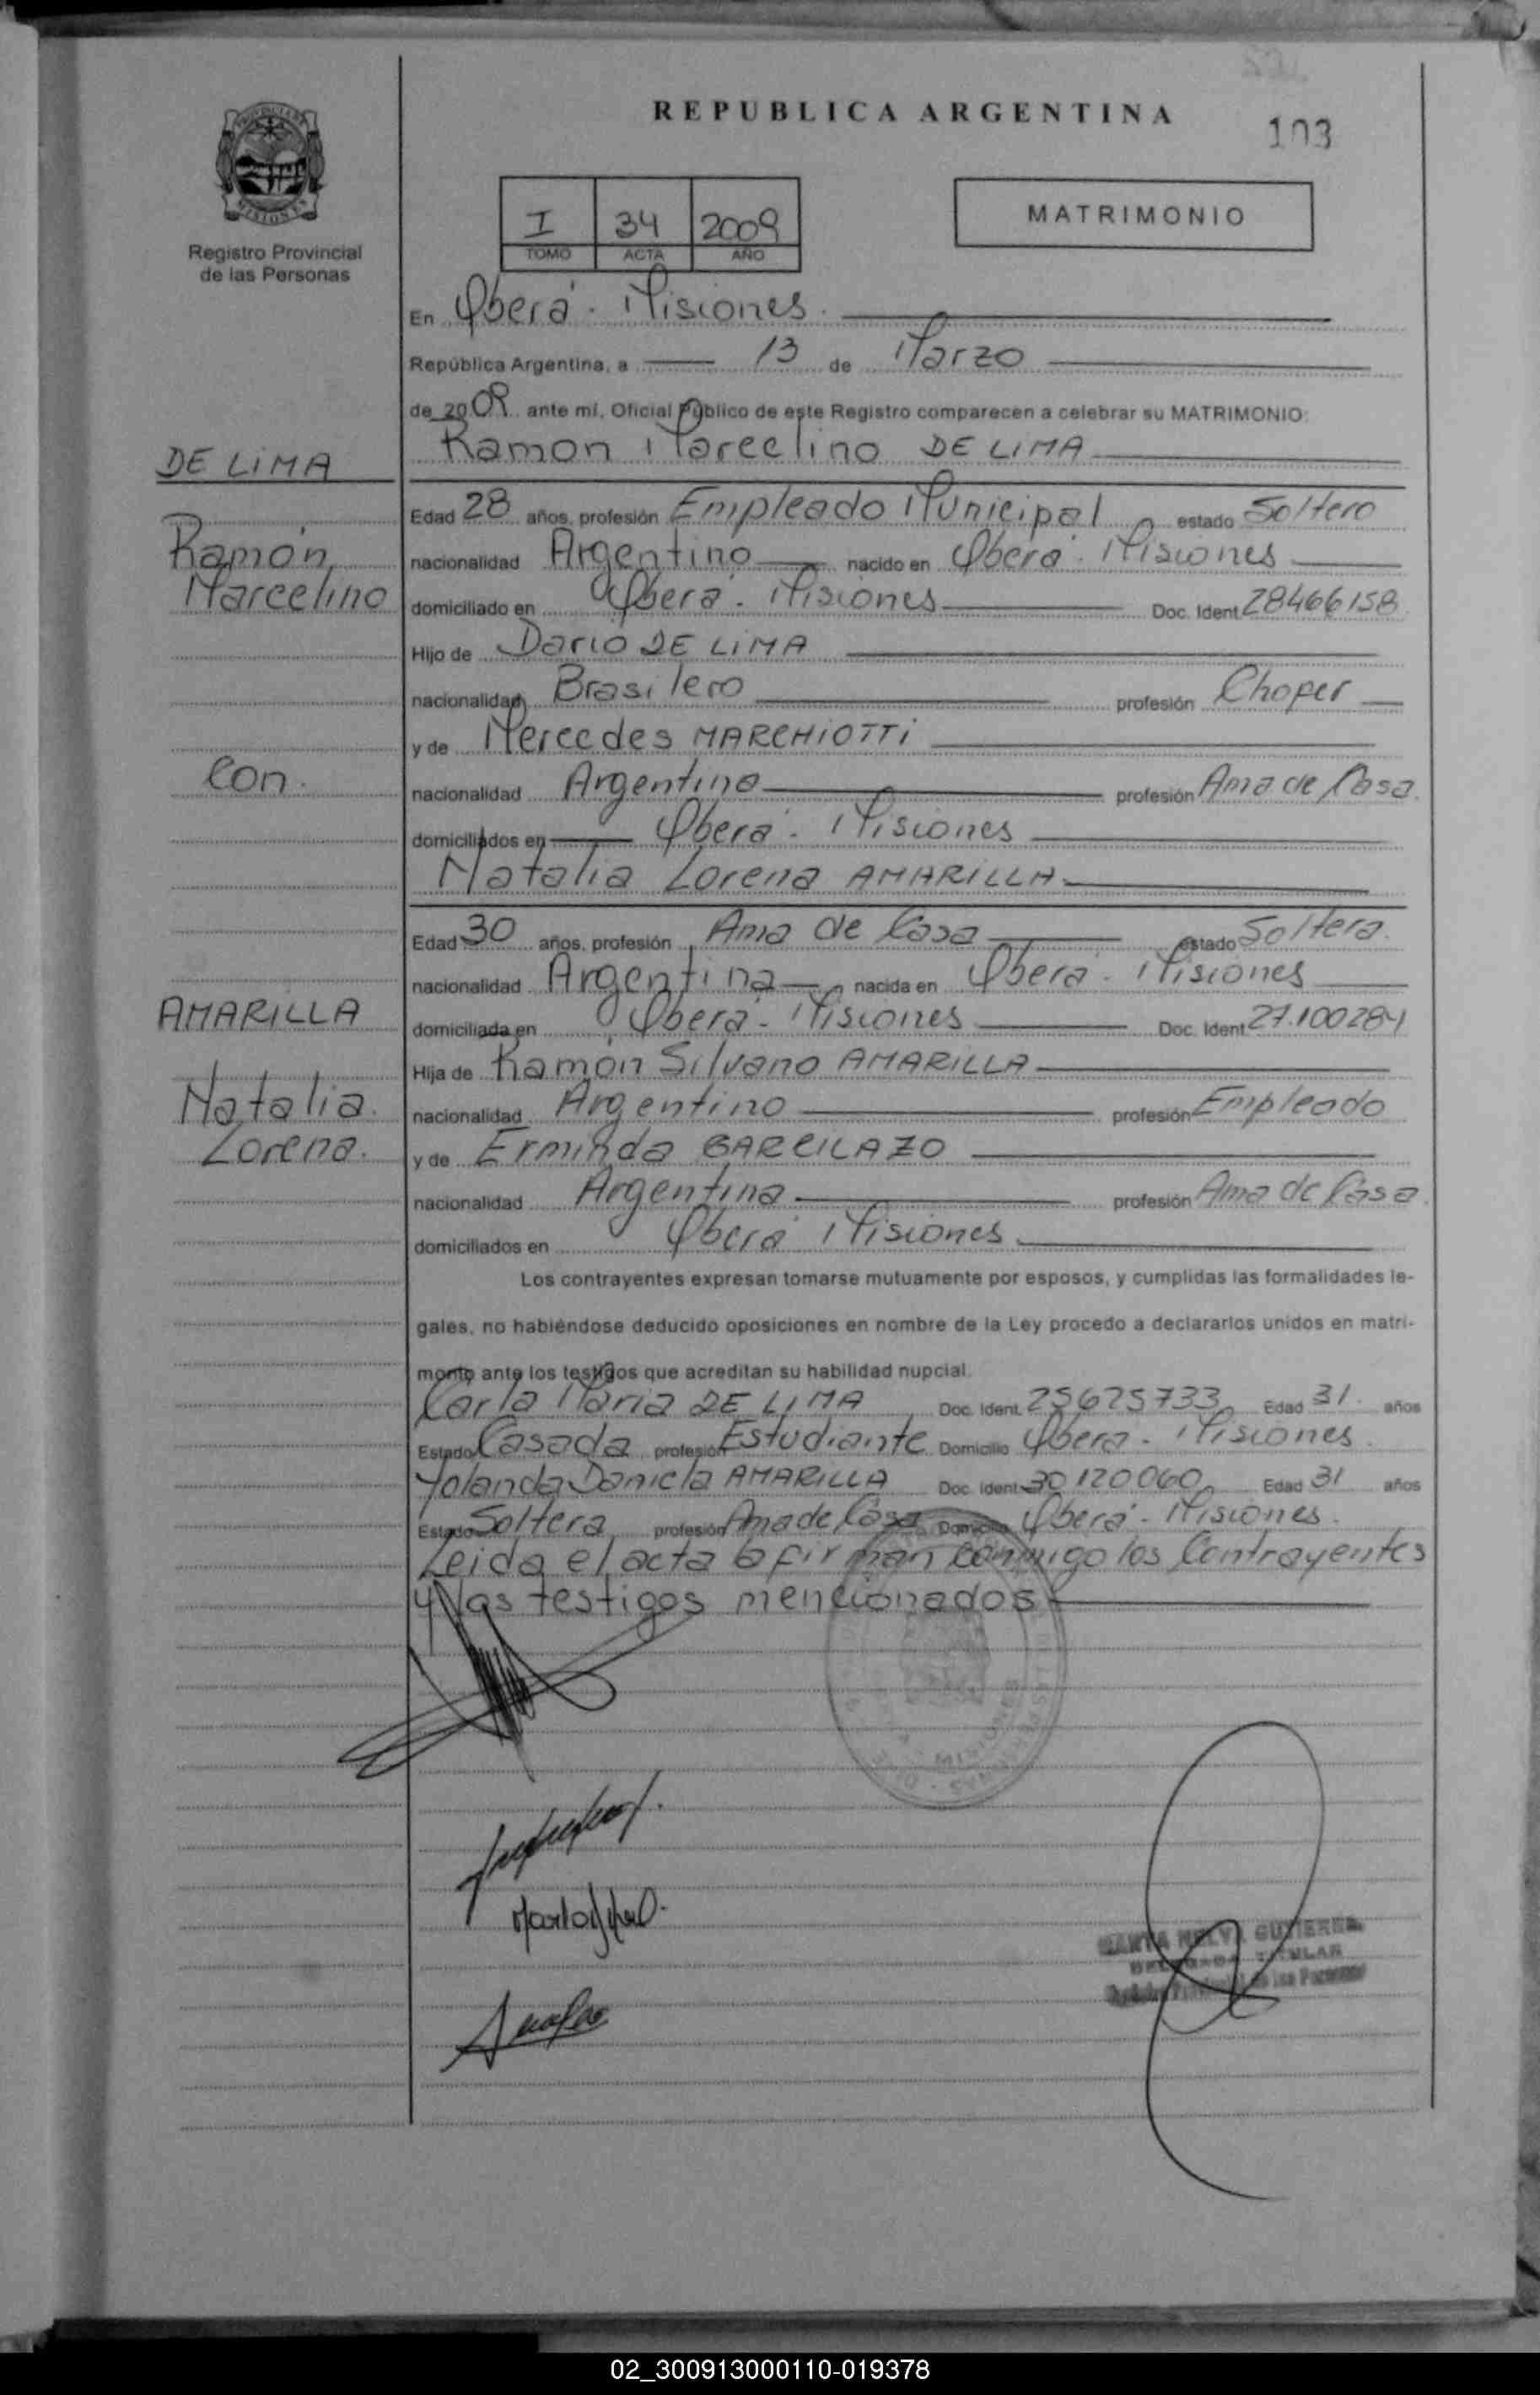 REPUBLICA ARGENTINA
103
PROVINCIA DE
MISIONES
Registro Provincial
de las Personas
I 34 2009
TOMO ACTA AÑO
MATRIMONIO
En Oberá - Misiones.
República Argentina, a 13 de Marzo
de 2009 ante mí, Oficial Público de este Registro comparecen a celebrar su MATRIMONIO:
Ramon Marcelino DE LIMA
DE LIMA
Ramón
Marcelino
Con.
AMARILLA
Natalia.
Lorena.
Edad 28 años, profesión Empleado Municipal estado Soltero
nacionalidad Argentino nacido en Oberá - Misiones
domiciliado en Oberá - Misiones Doc. Ident 28466158
Hijo de Dario DE LIMA
nacionalidad Brasilero profesión Choper
y de Mercedes MARCHIOTTI
nacionalidad Argentina profesión Ama de Casa.
domiciliados en Oberá - Misiones
Natalia Lorena AMARILLA
Edad 30 años, profesión Ama de Casa estado Soltera.
nacionalidad Argentina nacida en Oberá - Misiones
domiciliada en Oberá - Misiones Doc. Ident 27.100284
Hija de Ramón Silvano AMARILLA
nacionalidad Argentino profesión Empleado
y de Erminda GARCILAZO
nacionalidad Argentina profesión Ama de Casa.
domiciliados en Oberá Misiones
Los contrayentes expresan tomarse mutuamente por esposos, y cumplidas las formalidades le-
gales, no habiéndose deducido oposiciones en nombre de la Ley procedo a declararlos unidos en matri-
monio ante los testigos que acreditan su habilidad nupcial.
Carla Maria DE LIMA Doc. Ident. 25625733 Edad 31. años
Estado Casada profesión Estudiante Domicilio Oberá - Misiones.
Yolanda Daniela AMARILLA Doc. Ident 30120060 Edad 31 años
Estado Soltera profesión Ama de Casa Domicilio Oberá - Misiones.
Leida el acta la firman conmigo los Contrayentes
y los testigos mencionados
MARTA NELVA GUTIERREZ
DELEGADA TITULAR
de las Personas
02_300913000110-019378